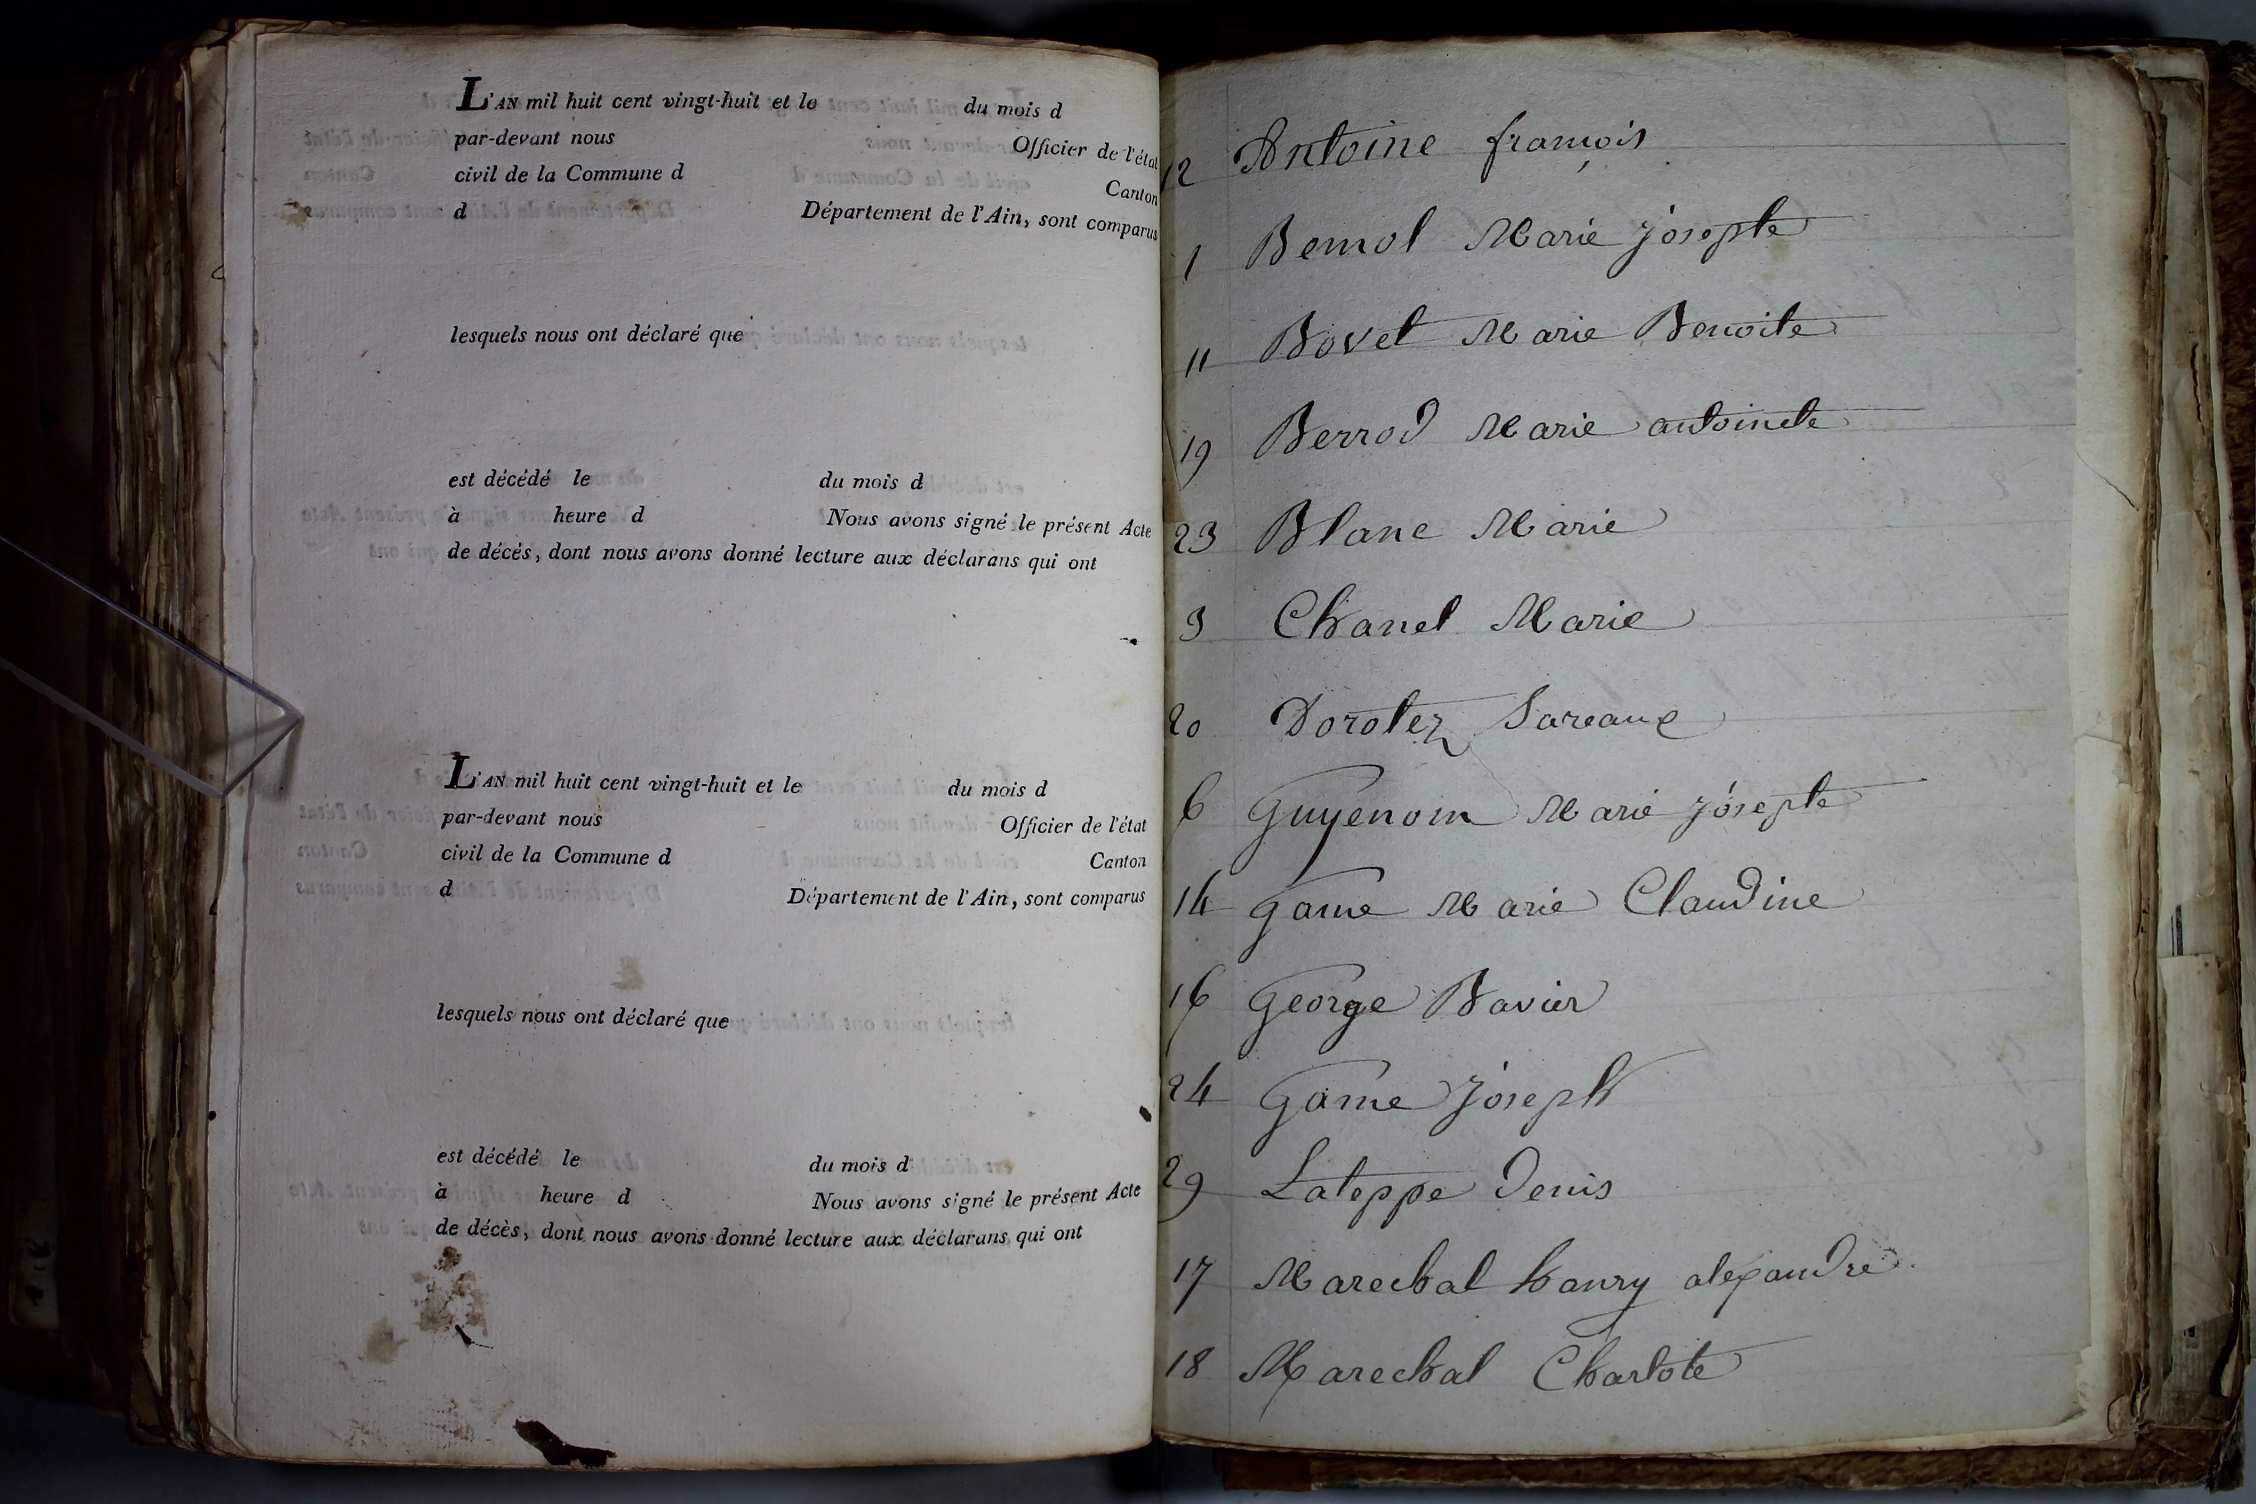 L'AN mil huit cent vingt-huit et le du mois d
par-devant nous Officier de l'état
civil de la Commune d Canton
d Département de l'Ain, sont comparus
lesquels nous ont déclaré que
est décédé le du mois d
à heure d Nous avons signé le présent Acte
de décès, dont nous avons donné lecture aux déclarans qui ont
L'AN mil huit cent vingt-huit et le du mois d
par-devant nous Officier de l'état
civil de la Commune d Canton
d Département de l'Ain, sont comparus
lesquels nous ont déclaré que
est décédé le du mois d
à heure d Nous avons signé le présent Acte
de décès, dont nous avons donné lecture aux déclarans qui ont
12 Antoine françois
1 Bemol Marie josephe
11 Bovet Marie Benoite
19 Berrod Marie antoinete
23 Blanc Marie
3 Chanel Marie
20 Dorotez
6 Guyenom Marie josephe
14 game Marie Claudine
16 george Bavier
24 game joseph
29 Lateppe Denis
17 Marechal hanry alexandre
18 Marechal Charlote